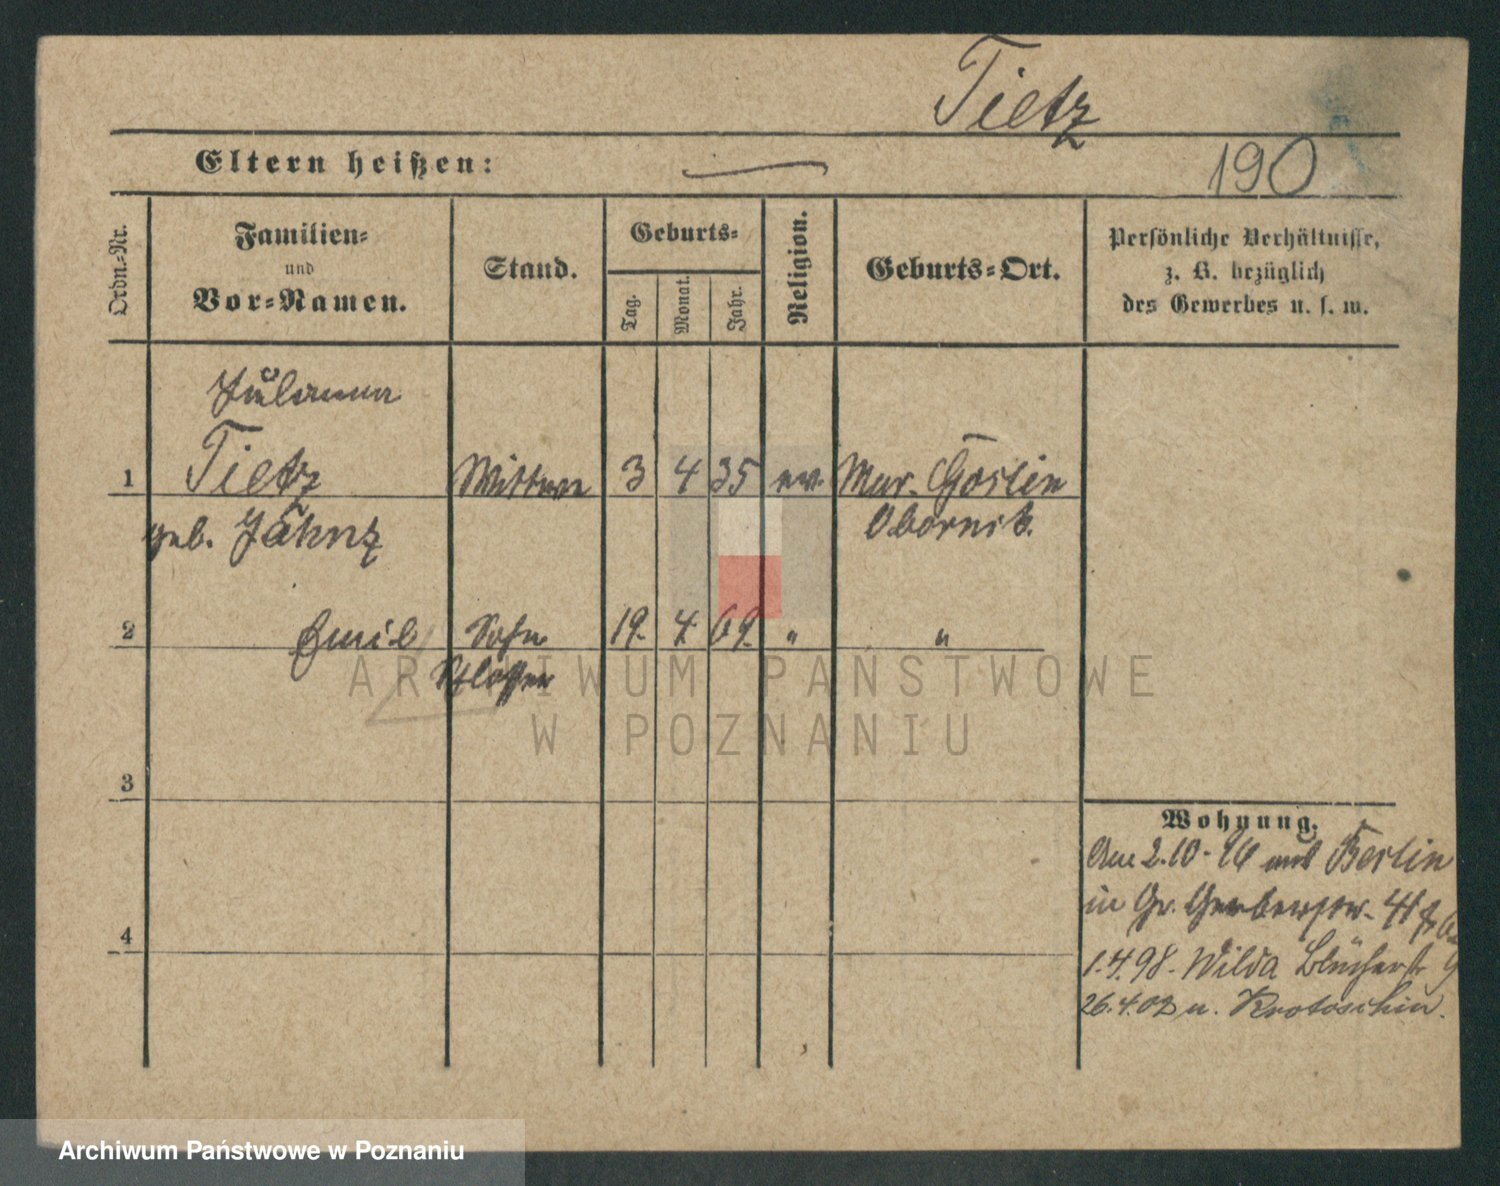 Tietz
Eltern heißen:
190
Ordn.-Nr.
Familien-
und
Vor-Namen.
Stand.
Geburts-
Tag.
Monat.
Jahr.
Religion.
Geburts-Ort.
Persönliche Verhältnisse,
z. B. bezüglich
des Gewerbes u. s. w.
1 Tietz Wittwe 3 4 35 ev. Mur. Goslin
geb. Jähnz Obornik.
2 Emil Sohn 19. 4. 69. " "
Schlosser
3
4
Wohnung.
Am 2.10. 96 aus Berlin
in Gr. Gerberstr. 41
1.4.98. Wilda Blücherstr 9
26.4.02 n. Krotoschin.
ARCHIWUM PAŃSTWOWE
W POZNANIU
Archiwum Państwowe w Poznaniu